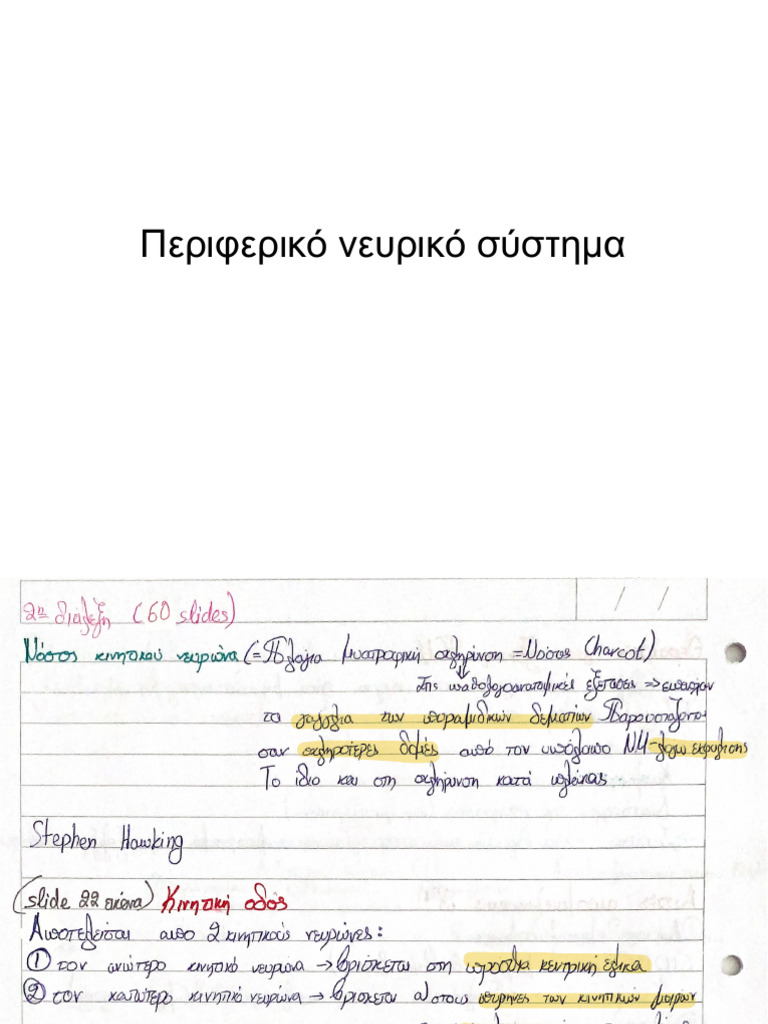 Περιφερικό νευρικό σύστημα
/ /
2η διάλεξη (60 slides)
Νόσος κινητικού νευρώνα (=Πλάγια μυατροφική σκλήρυνση = Νόσος Charcot)
Στις παθολογοανατομικές εξετάσεις ⇒
τα γάγγλια των πυραμιδικών δεματίων παρουσιάζονται
σαν σκληρότερες δομές από τον υπόλοιπο ΝΜ - λόγω εκφύλισης
Το ίδιο και στη σκλήρυνση κατά πλάκας
Stephen Hawking
(slide 22 εικόνα) Κινητική οδός
Αποτελείται από 2 κινητικούς νευρώνες:
① τον ανώτερο κινητικό νευρώνα → βρίσκεται στη πρόσθια κεντρική έλικα
② τον κατώτερο κινητικό νευρώνα → βρίσκεται α) στους πυρήνες των κινητικών μοιρών